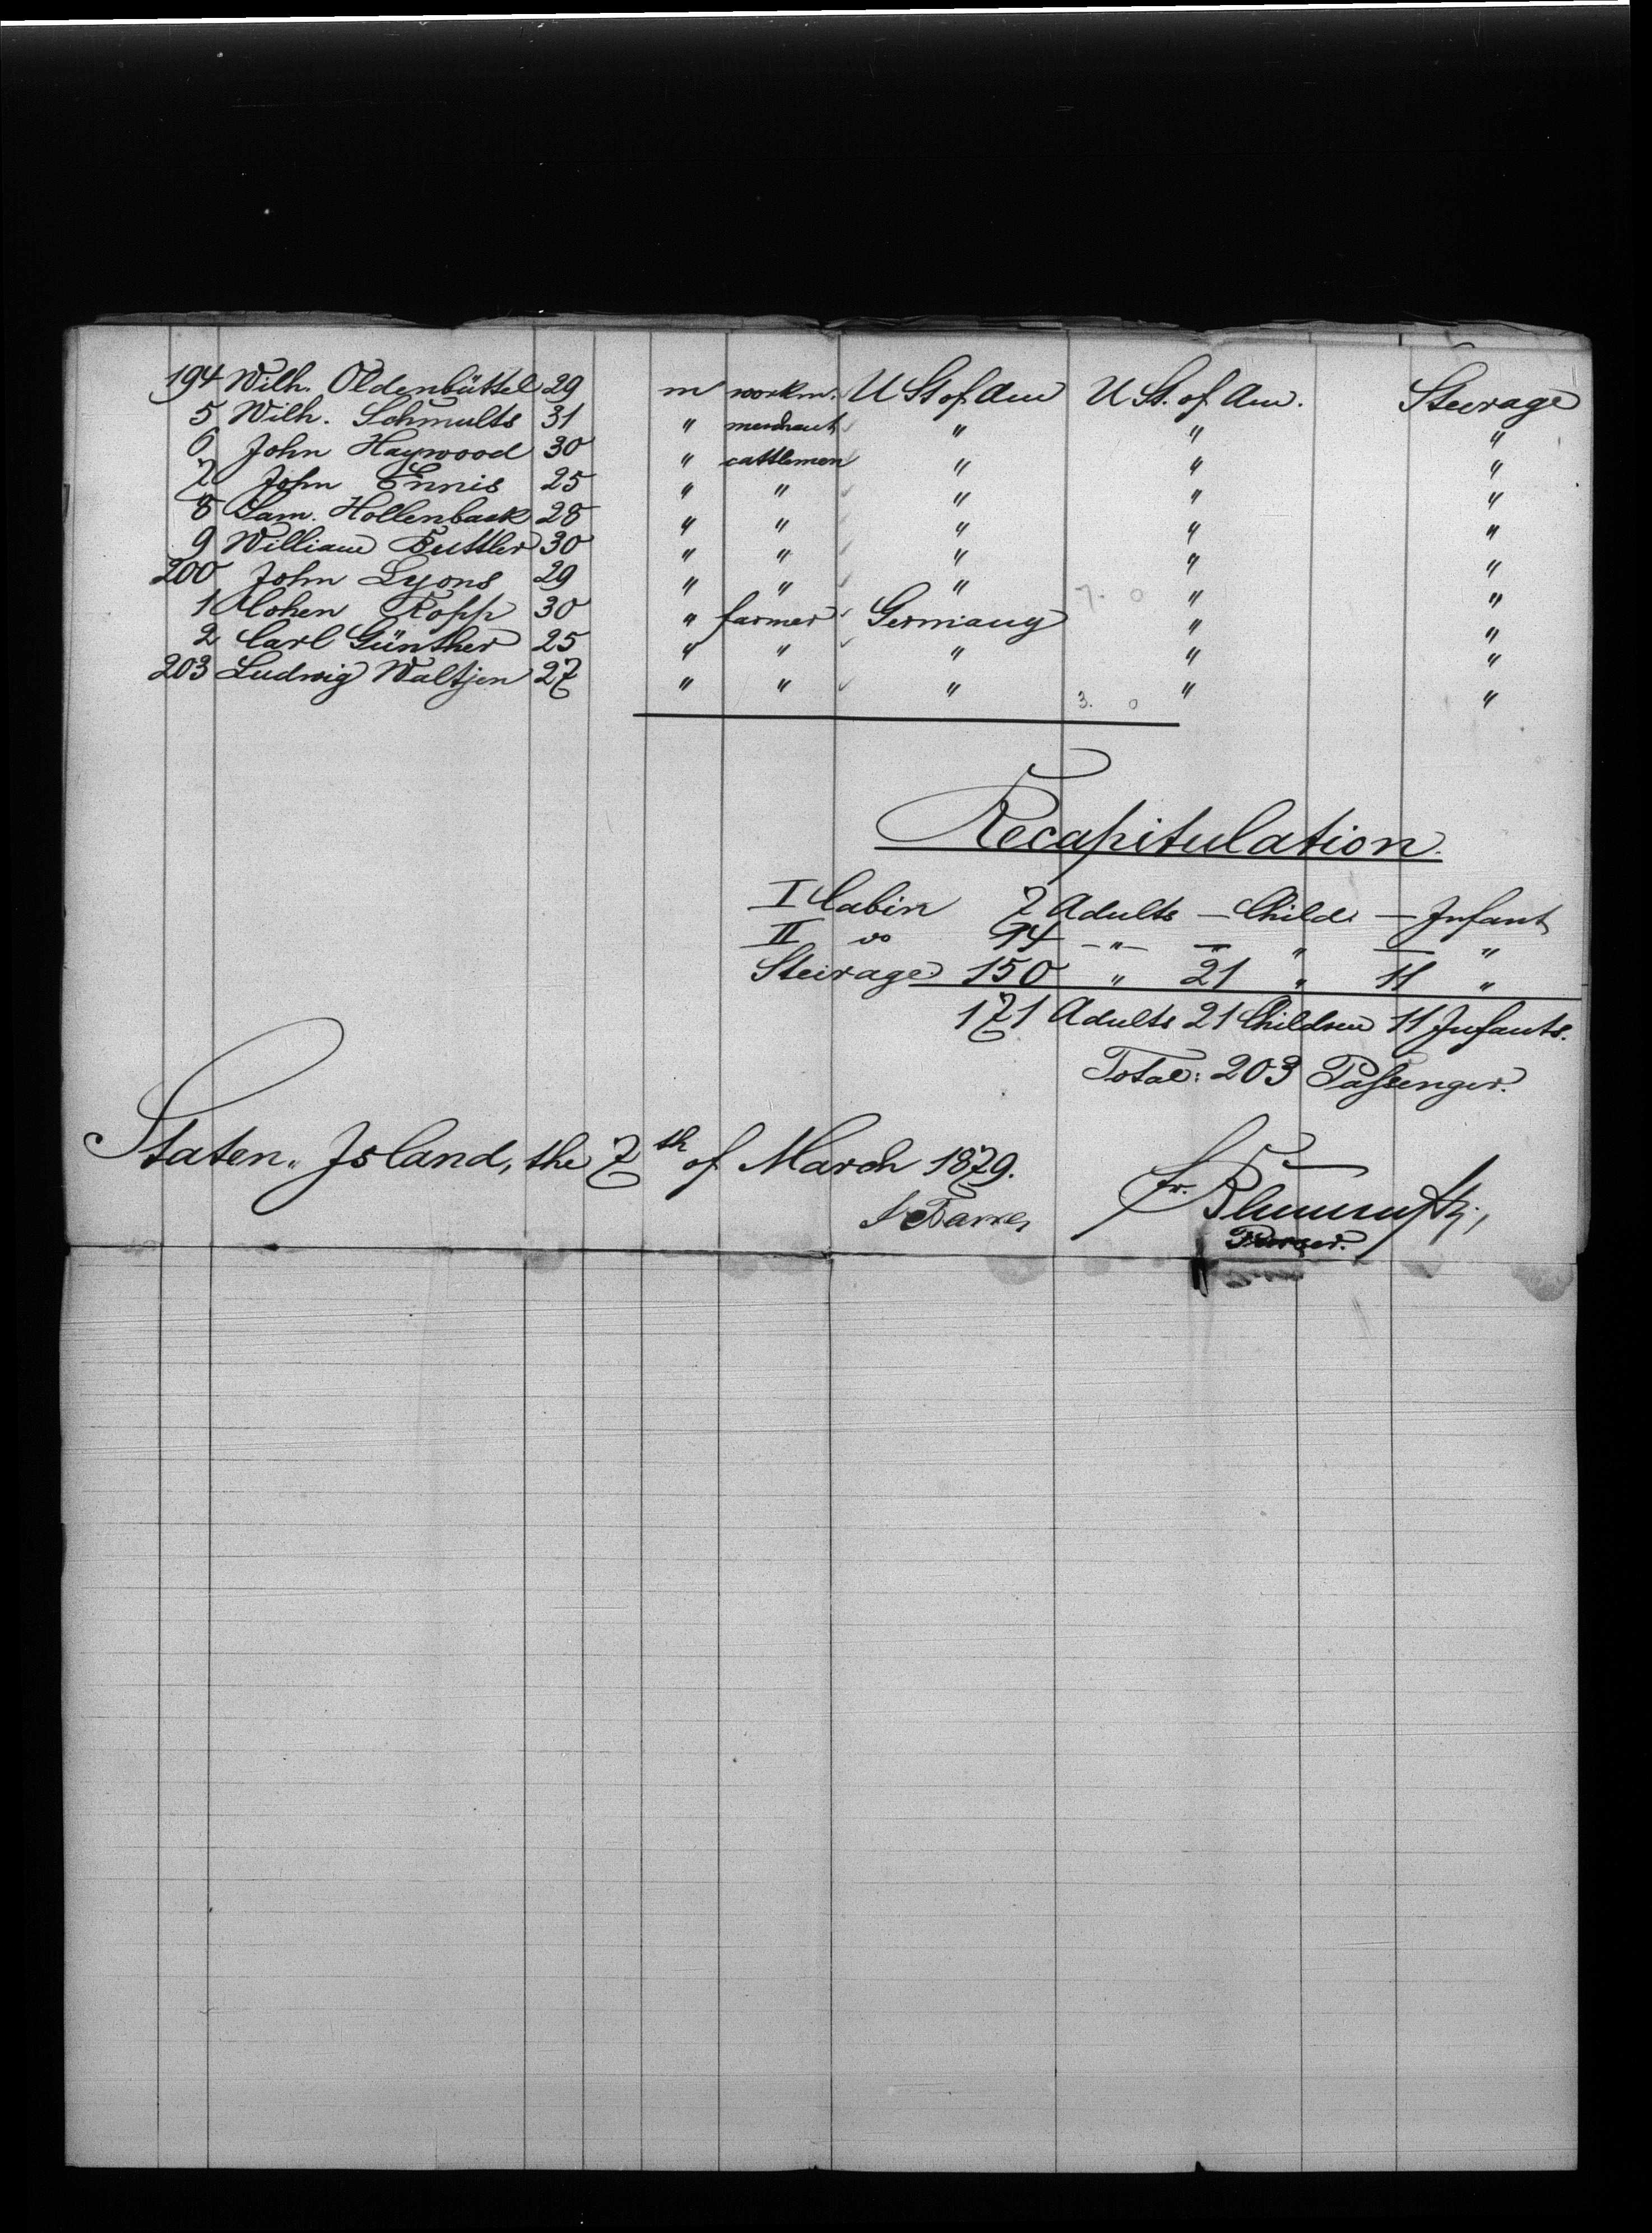 194 Wilh. Oldenbüttel 29 m workm. U St of Am U St. of Am. Steerage
5 Wilh. Schmults 31 " merchant " " "
6 John Haywood 30 " cattlemen " " "
7 John Ennis 25 " " " " "
8 Sam. Hollenback 28 " " " " "
9 William Buttler 30 " " " " "
200 John Lyons 29 " " " " "
7. 0
1 Cohen Ropp 30 " farmer Germany " "
2 Carl Günther 25 " " " " "
203 Ludwig Waltjen 27 " " " " "
3. 0
Recapitulation.
I Cabin 7 Adults — Child. — Infant
II do 14 — " — — " — "
Steirage 150 " 21 " 11 "
171 Adults 21 Children 11 Infants.
Total: 203 Passenger.
Staten Island, the 7th of March 1879.
Fr.
Purser.